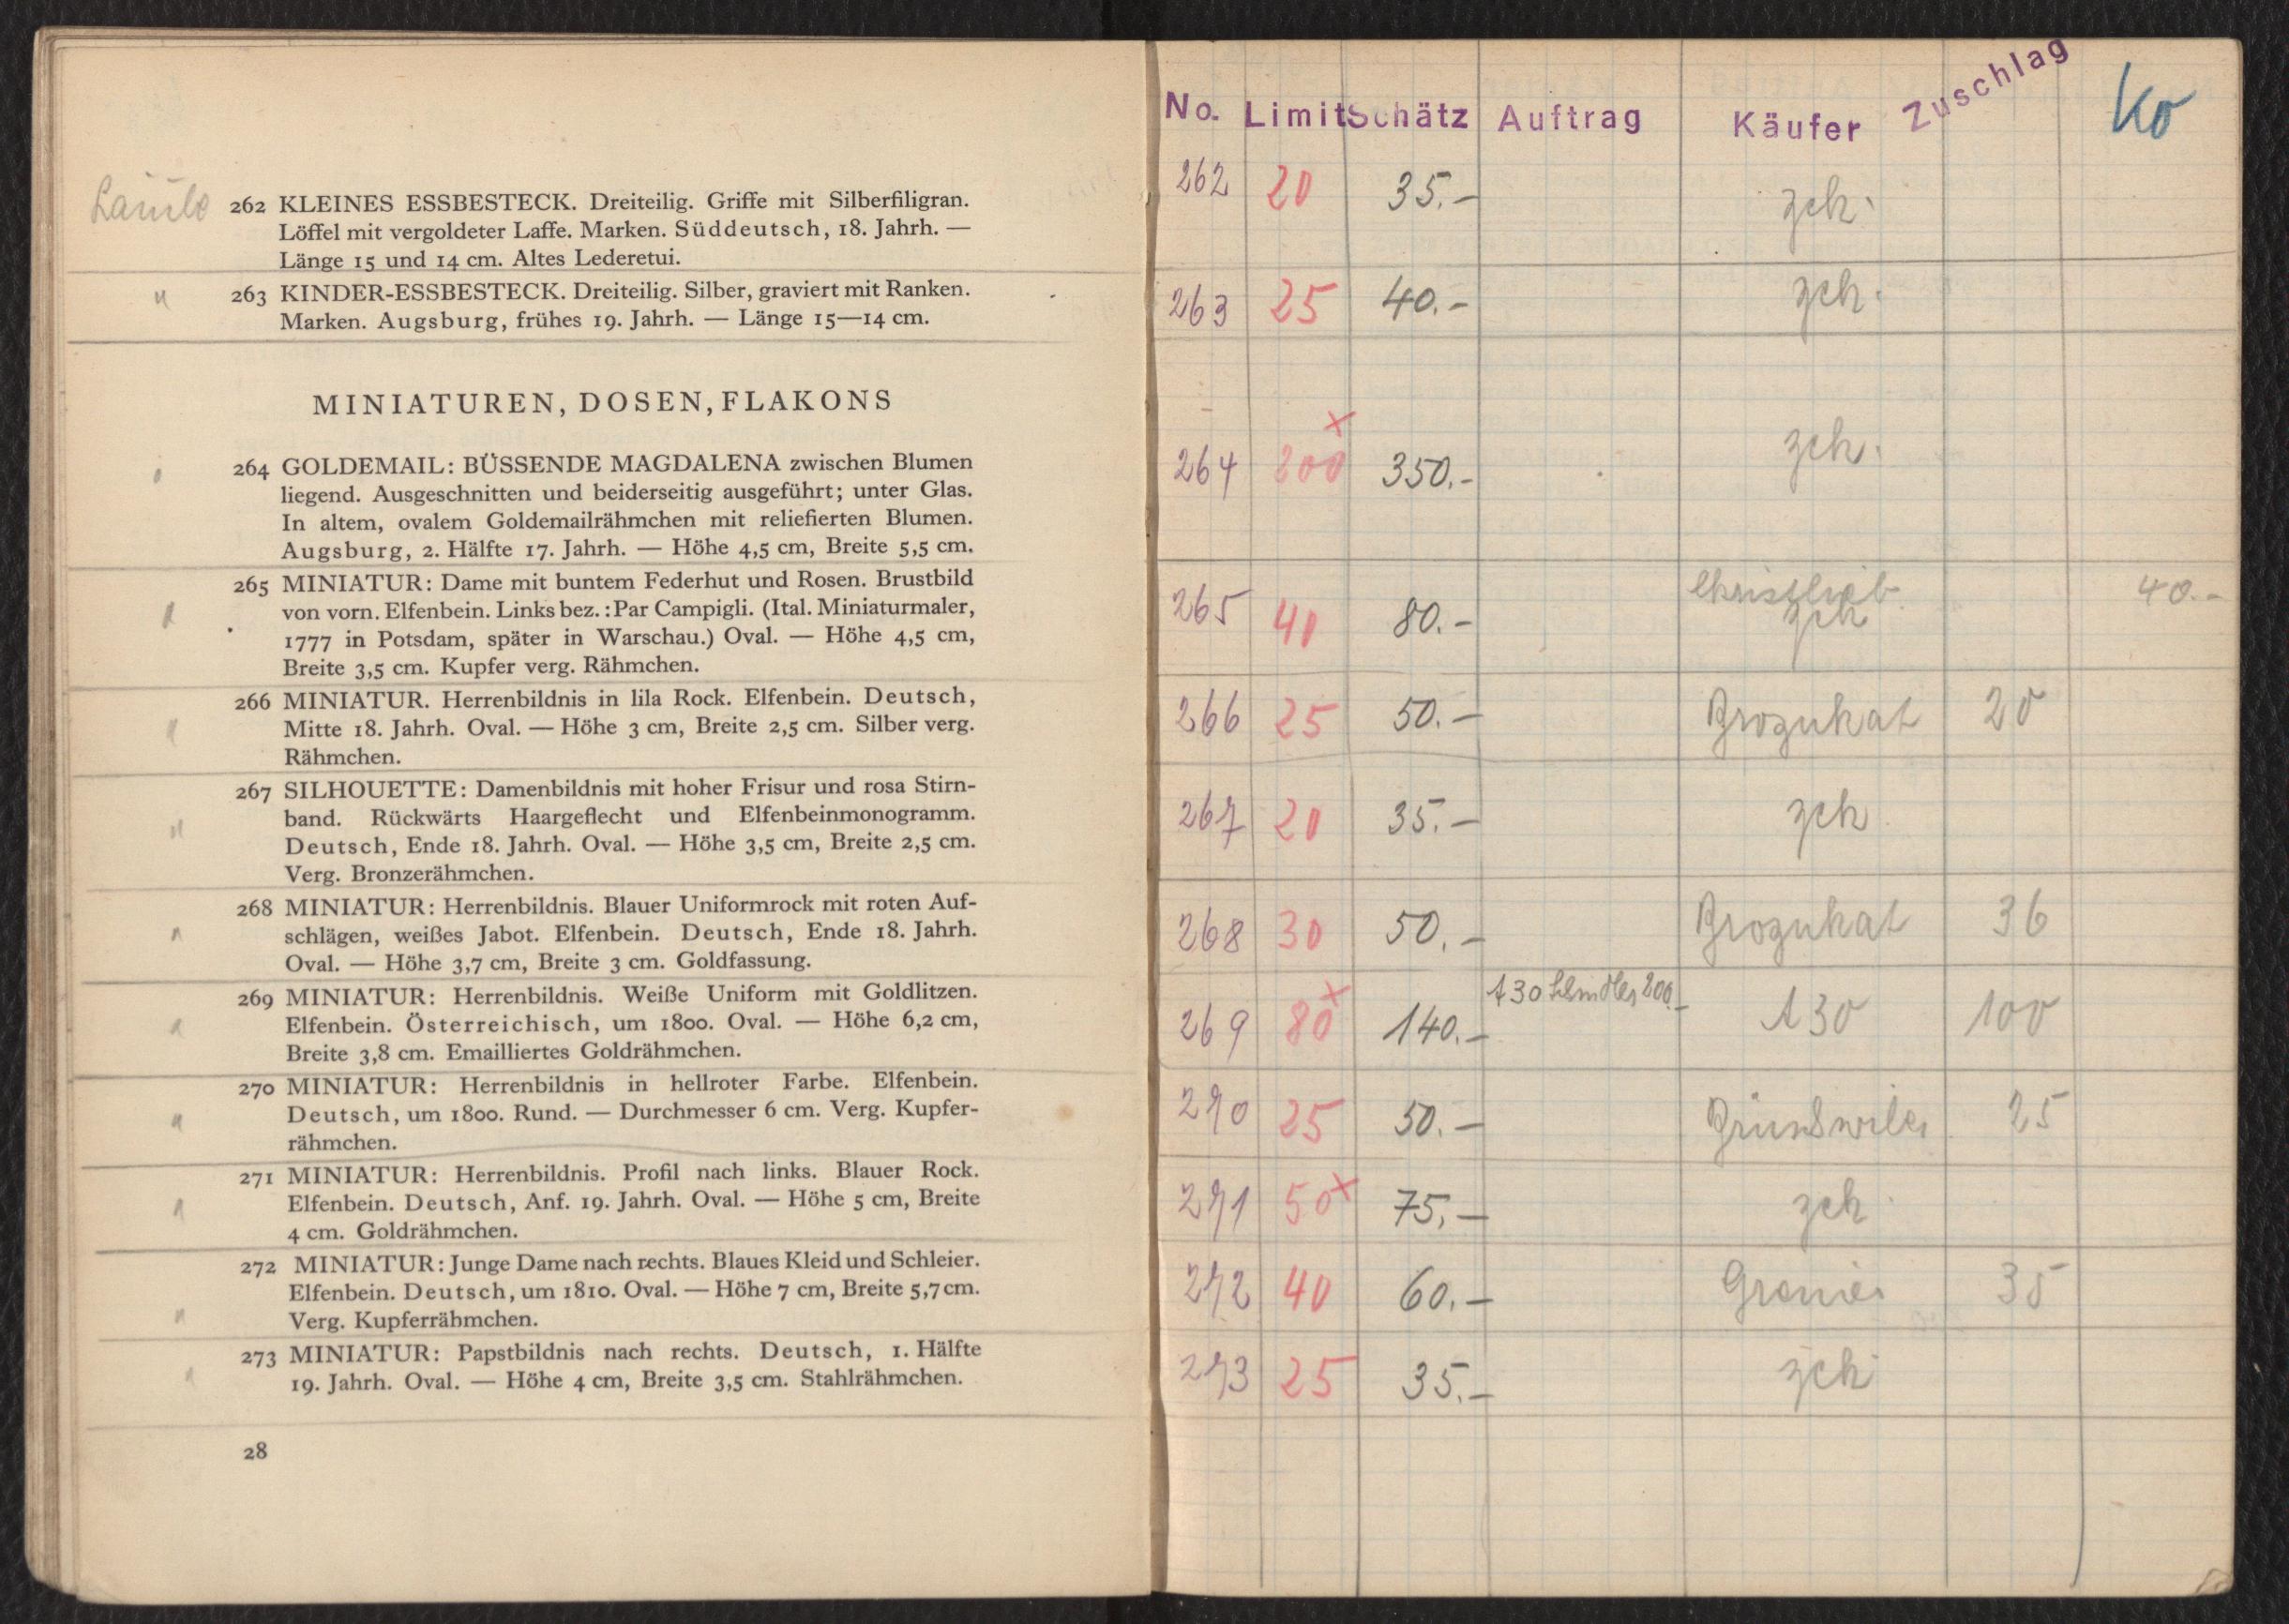 262 KLEINES ESSBESTECK. Dreiteilig. Griffe mit Silberfiligran.
Löffel mit vergoldeter Laffe. Marken. Süddeutsch, 18. Jahrh. —
Länge 15 und 14 cm. Altes Lederetui.
" 263 KINDER-ESSBESTECK. Dreiteilig. Silber, graviert mit Ranken.
Marken. Augsburg, frühes 19. Jahrh. — Länge 15—14 cm.
MINIATUREN, DOSEN, FLAKONS
" 264 GOLDEMAIL: BÜSSENDE MAGDALENA zwischen Blumen
liegend. Ausgeschnitten und beiderseitig ausgeführt; unter Glas.
In altem, ovalem Goldemailrähmchen mit reliefierten Blumen.
Augsburg, 2. Hälfte 17. Jahrh. — Höhe 4,5 cm, Breite 5,5 cm.
" 265 MINIATUR: Dame mit buntem Federhut und Rosen. Brustbild
von vorn. Elfenbein. Links bez.: Par Campigli. (Ital. Miniaturmaler,
1777 in Potsdam, später in Warschau.) Oval. — Höhe 4,5 cm,
Breite 3,5 cm. Kupfer verg. Rähmchen.
" 266 MINIATUR. Herrenbildnis in lila Rock. Elfenbein. Deutsch,
Mitte 18. Jahrh. Oval. — Höhe 3 cm, Breite 2,5 cm. Silber verg.
Rähmchen.
" 267 SILHOUETTE: Damenbildnis mit hoher Frisur und rosa Stirn-
band. Rückwärts Haargeflecht und Elfenbeinmonogramm.
Deutsch, Ende 18. Jahrh. Oval. — Höhe 3,5 cm, Breite 2,5 cm.
Verg. Bronzerähmchen.
" 268 MINIATUR: Herrenbildnis. Blauer Uniformrock mit roten Auf-
schlägen, weißes Jabot. Elfenbein. Deutsch, Ende 18. Jahrh.
Oval. — Höhe 3,7 cm, Breite 3 cm. Goldfassung.
" 269 MINIATUR: Herrenbildnis. Weiße Uniform mit Goldlitzen.
Elfenbein. Österreichisch, um 1800. Oval. — Höhe 6,2 cm,
Breite 3,8 cm. Emailliertes Goldrähmchen.
" 270 MINIATUR: Herrenbildnis in hellroter Farbe. Elfenbein.
Deutsch, um 1800. Rund. — Durchmesser 6 cm. Verg. Kupfer-
rähmchen.
" 271 MINIATUR: Herrenbildnis. Profil nach links. Blauer Rock.
Elfenbein. Deutsch, Anf. 19. Jahrh. Oval. — Höhe 5 cm, Breite
4 cm. Goldrähmchen.
" 272 MINIATUR: Junge Dame nach rechts. Blaues Kleid und Schleier.
Elfenbein. Deutsch, um 1810. Oval. — Höhe 7 cm, Breite 5,7 cm.
Verg. Kupferrähmchen.
" 273 MINIATUR: Papstbildnis nach rechts. Deutsch, 1. Hälfte
19. Jahrh. Oval. — Höhe 4 cm, Breite 3,5 cm. Stahlrähmchen.
28
No. Limit Schätz Auftrag Käufer Zuschlag Ko
262 20 35.- zch.
263 25 40.- zch.
264 x 350.- zch.
265 40 80.- Christlieb zch 40.-
266 25 50.- Brozukat 20
267 20 35.- zch
268 30 50.- Brozukat 36
269 80 x 140.- A30 200.- A30 100
270 25 50.- 25
271 50 x 75,- zch
272 40 60.- 35
273 25 35.- zch